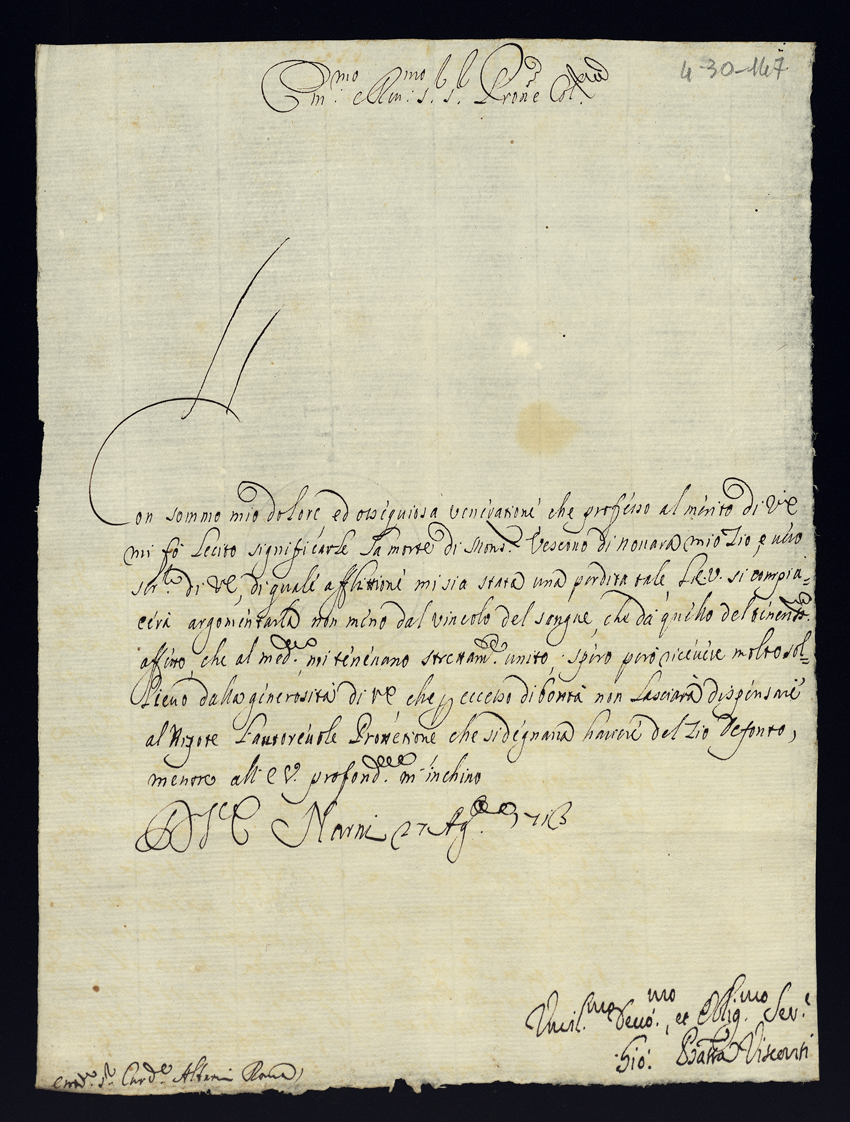 4-30-147
Em.mo e Rm.mo S.r S.r P.rone Col.mo
Con sommo mio dolore ed ossequiosa veneratione che professo al merito di VE
mi fò lecito significarle la morte di Mons.r Vescovo di Novara mio Zio, e vero
ser.re di VE, di quale afflittione mi sia stata una perdita tale L'E.V. si compia=
cerà argomentarla non meno dal vincolo del sangue, che da quello del
affetto, che al med.mo mi tenevano strettam.te unito, spero però ricevere molto sol=
lievo dalla generosità di VE che p eccesso di bontà non lasciarà dispensare
al Nipote l'autorevole Protettione che si degnava havere del Zio Defonto,
mentre all'E V. profond.te m'inchino
D V E Narni 27 Ag.to 1713
Umil.mo Devo.mo, et Oblig.mo Ser.e
Gio: Batta Visconti
S.r Card.e Altieri Roma